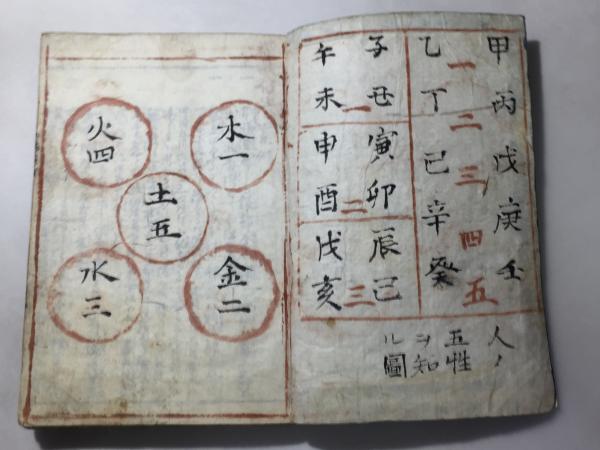 甲丙戊庚壬
一二三四五
乙丁己辛癸
子丑
一
午未
寅卯
二
申酉
辰巳
三
戌亥
人ノ
五性
ヲ知
ル圖
木一
金二
土五
火四
水三